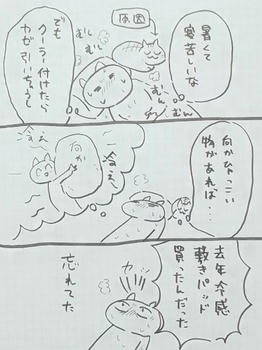 暑くて
寝苦しいな
原因
むん
むん
むん
むん
でも
クーラー付けたら
カゼ引いちゃうし
何かひゃっこい
物があれば…
何か
冷え
冷え
去年冷感
敷きパッド
買ったんだった
カッ
忘れてた